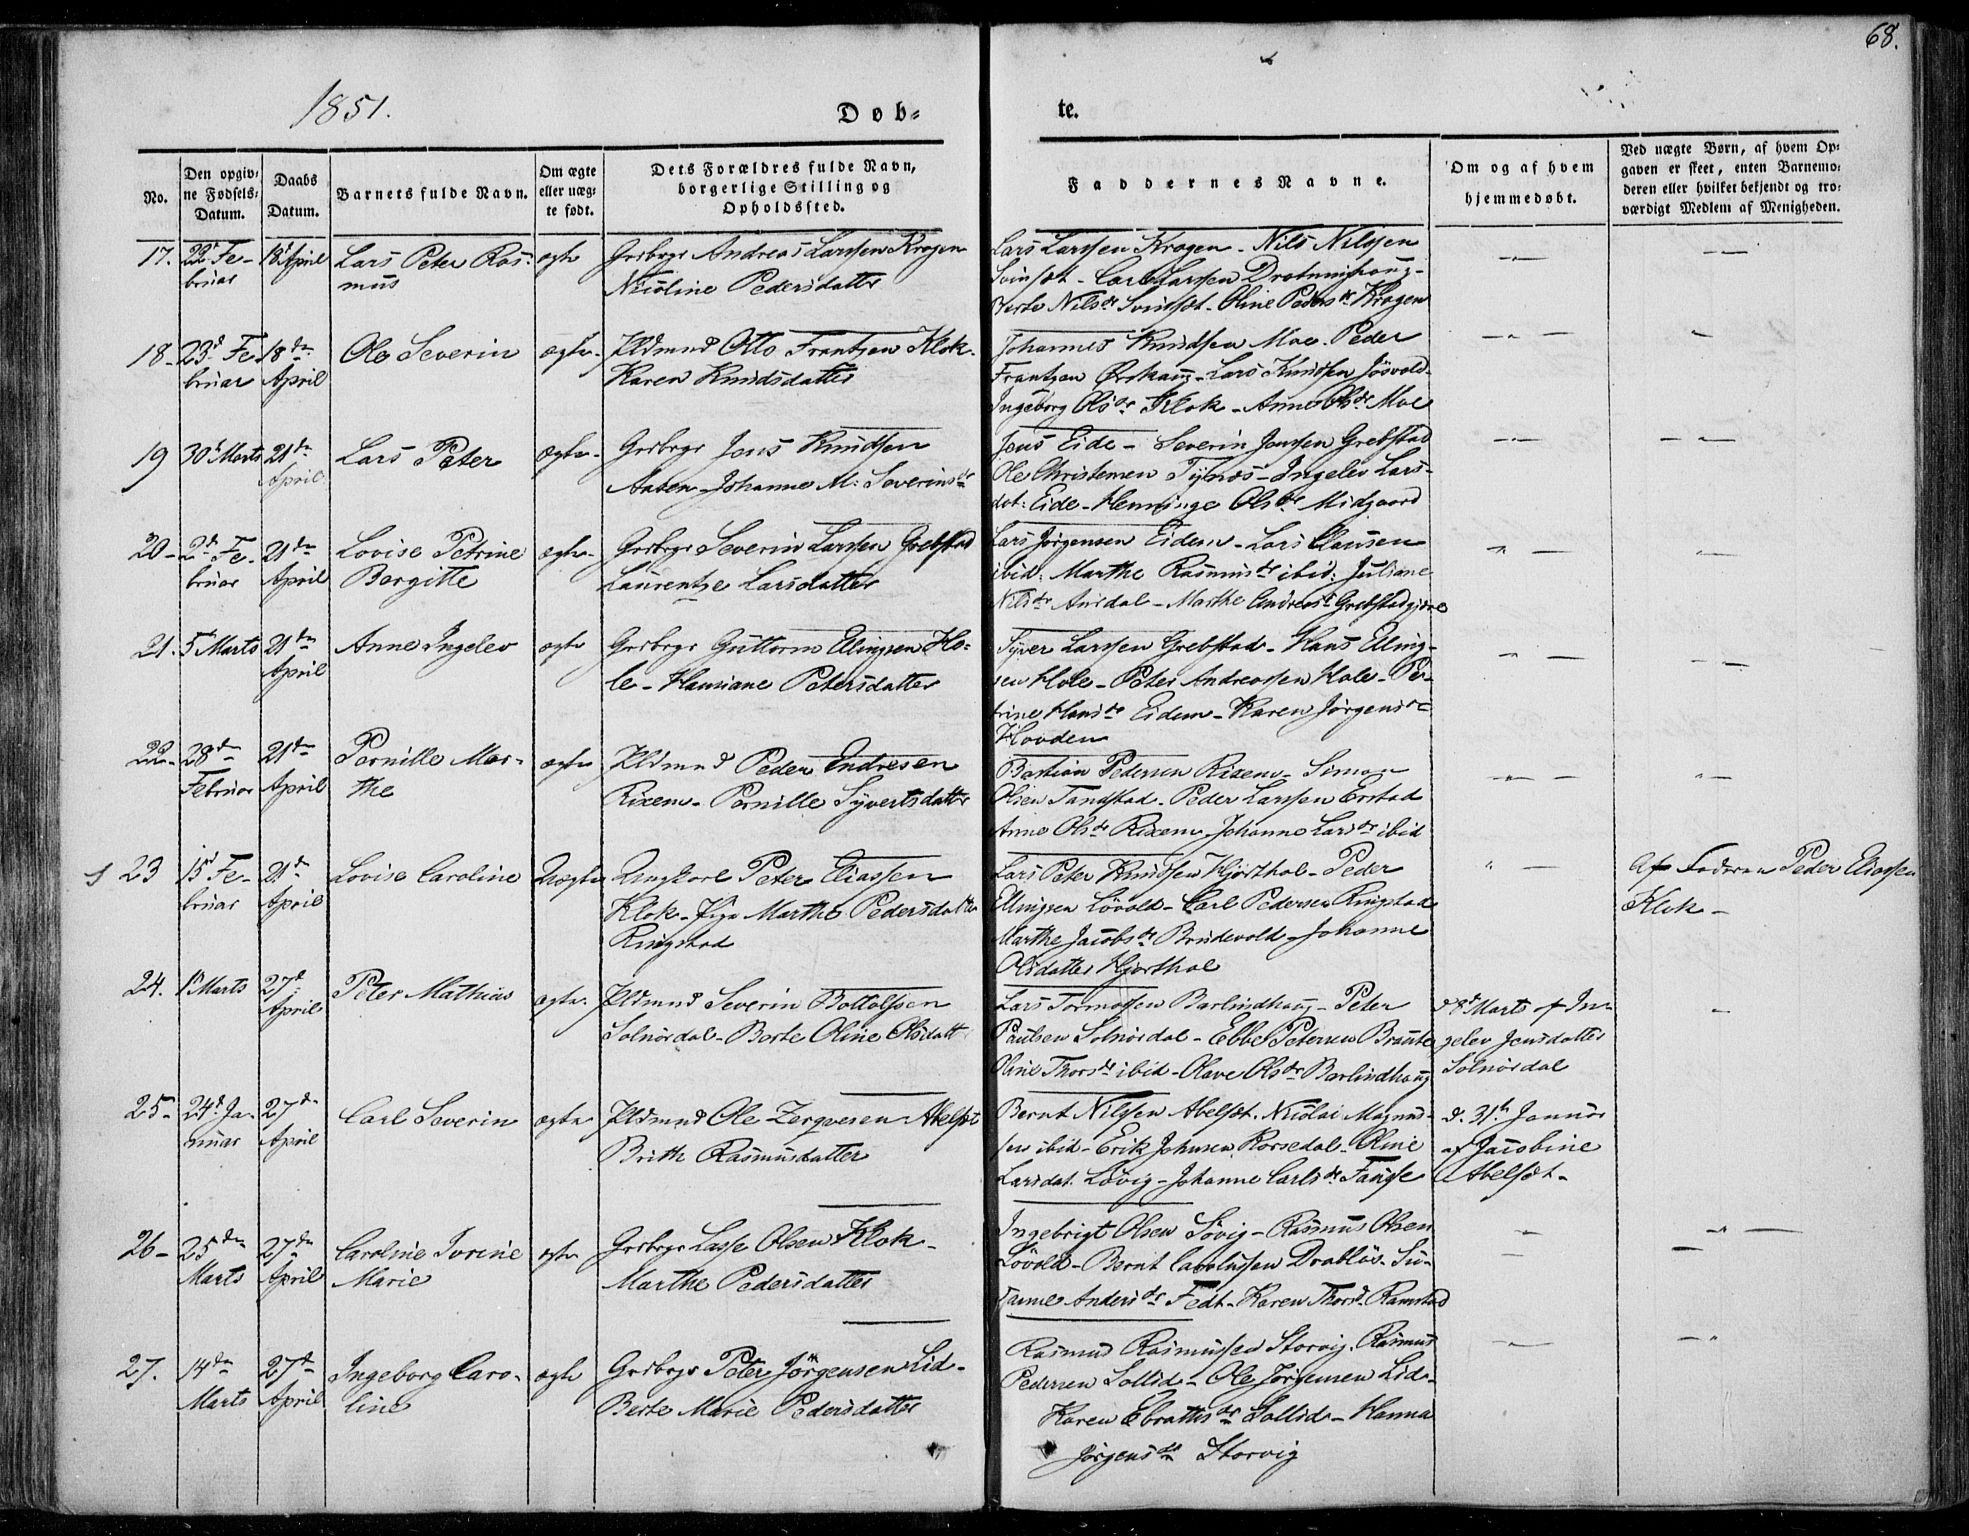 68.
1851.
Døb-
te.
No.
Den opgiv-
ne Fødsels-
Datum.
Daabs
Datum.
Barnets fulde Navn.
Om ægte
eller uæg-
te født.
Dets Forældres fulde Navn,
borgerlige Stilling og
Opholdssted.
Faddernes Navne.
Om og af hvem
hjemmedøbt.
Ved uægte Børn, af hvem Op-
gaven er skeet, enten Barnemo-
deren eller hvilket bekjendt og tro-
værdigt Medlem af Menigheden.
17.
22d Fe-
bruar
18d April
Lars Peter Ras-
mus
ægte
Grdbrgr Andreas Larssen Kragen
Nicoline Pedersdatter
Lars Larssen Kragen - Nils Nilssen
Svinsæt - Carl Larssen Drotninghaug -
Berte Nilsdr Svinsæt - Oline Pedersdr Kragen
18-
23d Fe-
bruar
18de
April
Ole Severin
ægte-
Pldmnd Otto Frantzen Klok-
Karen Knudsdatter
Johannes Knudsen Moe. Peder
Frantzen Ørskaug - Lars Knudsen Jøsvold-
Ingeborg Olsdr Klok - Anne Olsdr Moe
19
30d Marts
21de
April
Lars Peter
ægte-
Grdbrgr Jens Knudsen
Aasen - Johanne M: Severinsdr
Jens Eide - Severin Jenssen Grebstad
Ole Christensen Tynæs - Ingelev Lars-
dat: Eide - Henninge Olsdr Midgaard
20-
2d Fe-
bruar
21de
April
Lovise Petrine
Bergitte
ægte-
Grdbrgr Severin Larssen Grebstad
Laurentze Larsdatter
Lars Jørgensen Eidem - Lars Clausen
ibid: Marthe Rasmusdr ibid: Juliane
Nilsdr Aursdal - Marthe Andreasdr Grebstadgjære
21.
5 Marts
21de
April
Anne Ingelev
ægte
Grdbrgr Guttorm Ellingsen Ho-
le - Hansiane Petersdatter
Syver Larssen Grebstad - Hans Elling-
sen Hole - Peter Andreassen Hole - Pe-
trine Hansdr Eidem - Karen Jørgensdr
Hovden
22-
28de
Februar
21de
April
Pernille Mar-
the
ægte
Pldmnd Peder Endresen
Rixem - Pernille Syvertsdatter
Bastian Pedersen Rixem - Simon
Olsen Tandstad - Peder Larssen Erstad
Anne Olsdr Rixem - Johanne Larsdr ibid
23
15d Fe-
bruar
21de
April
Lovise Caroline
Uægte
Ungkarl Peter Eliassen
Klok - Pige Marthe Pedersdatter
Ringstad
Lars Peter Knudsen Hjorthol - Peder
Ellingsen Løvold - Carl Pedersen Ringstad
Marthe Jacobsdr Brudevold - Johanne
Olsdatter Hjorthol
Af Faderen Peder Eliassen
Klok -
24.
1d Marts
27d
April
Peter Mathias
ægte.
Pldmnd Severin Bottolfsen
Solnørdal - Berte Oline Olsdatt
Lars Tormodsen Barlindhaug - Peter
Paulsen Solnørdal - Ebbe Petersen Braute
Oline Thorsdr ibid - Olave Olsdr Barlindhaug
d 8d Marts af In-
gelev Jensdatter
Solnørdal
25-
24d Ja-
nuar
27de
April
Carl Severin
ægte
Pldmnd Ole Zergvesen Abelsæt
Brith Rasmusdatter
Bernt Nilssen Abelsæt. Nicolai Magnus-
sen ibid - Erik Johnsen Korsedal - Oline
Larsdat. Løvig - Johanne Carlsdr
d. 31te Januar
af Jacobine
Abelsæt -
26-
25de
Marts
27de
April
Caroline Iverine
Marie
ægte
Grdbrgr Lasse Olsen Klok -
Marthe Pedersdatter
Ingebrigt Olsen Søvig - Rasmus Olsen
Løvold - Bernt Carolussen Drabløs - Su-
sanne Andersdr Fedt - Karen Thorsdr Ramstad
27.
14de
Marts
27de
April
Ingeborg Caro-
line
ægte
Grdbrgr Peter Jørgensen Lid-
Berte Marie Pedersdatter
Rasmus Rasmussen Storvig. Rasmus
Pedersen Sollid - Ole Jørgensen Lid-
Karen Ebrattsdr Sollid - Hanna
Jørgensdr Storvig